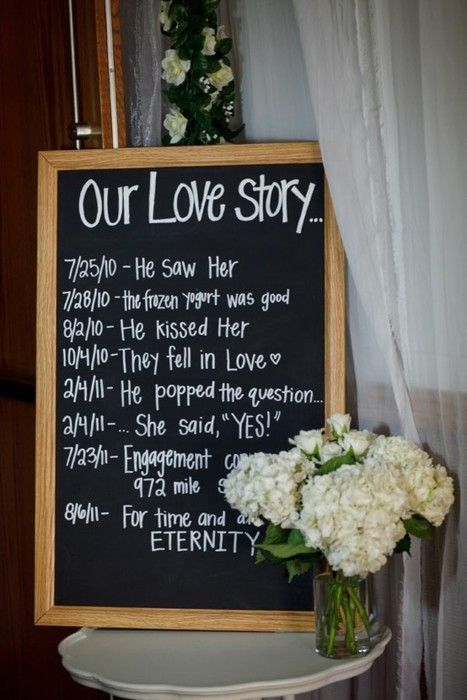 Our Love Story...
7/25/10 - He Saw Her
7/28/10 - the frozen yogurt was good
8/2/10 - He kissed Her
10/4/10 - They fell in Love ♡
2/4/11 - He popped the question...
2/4/11 - ... She said, "YES!"
7/23/11 - Engagement
972 mile
8/6/11 - For time and
ETERNITY